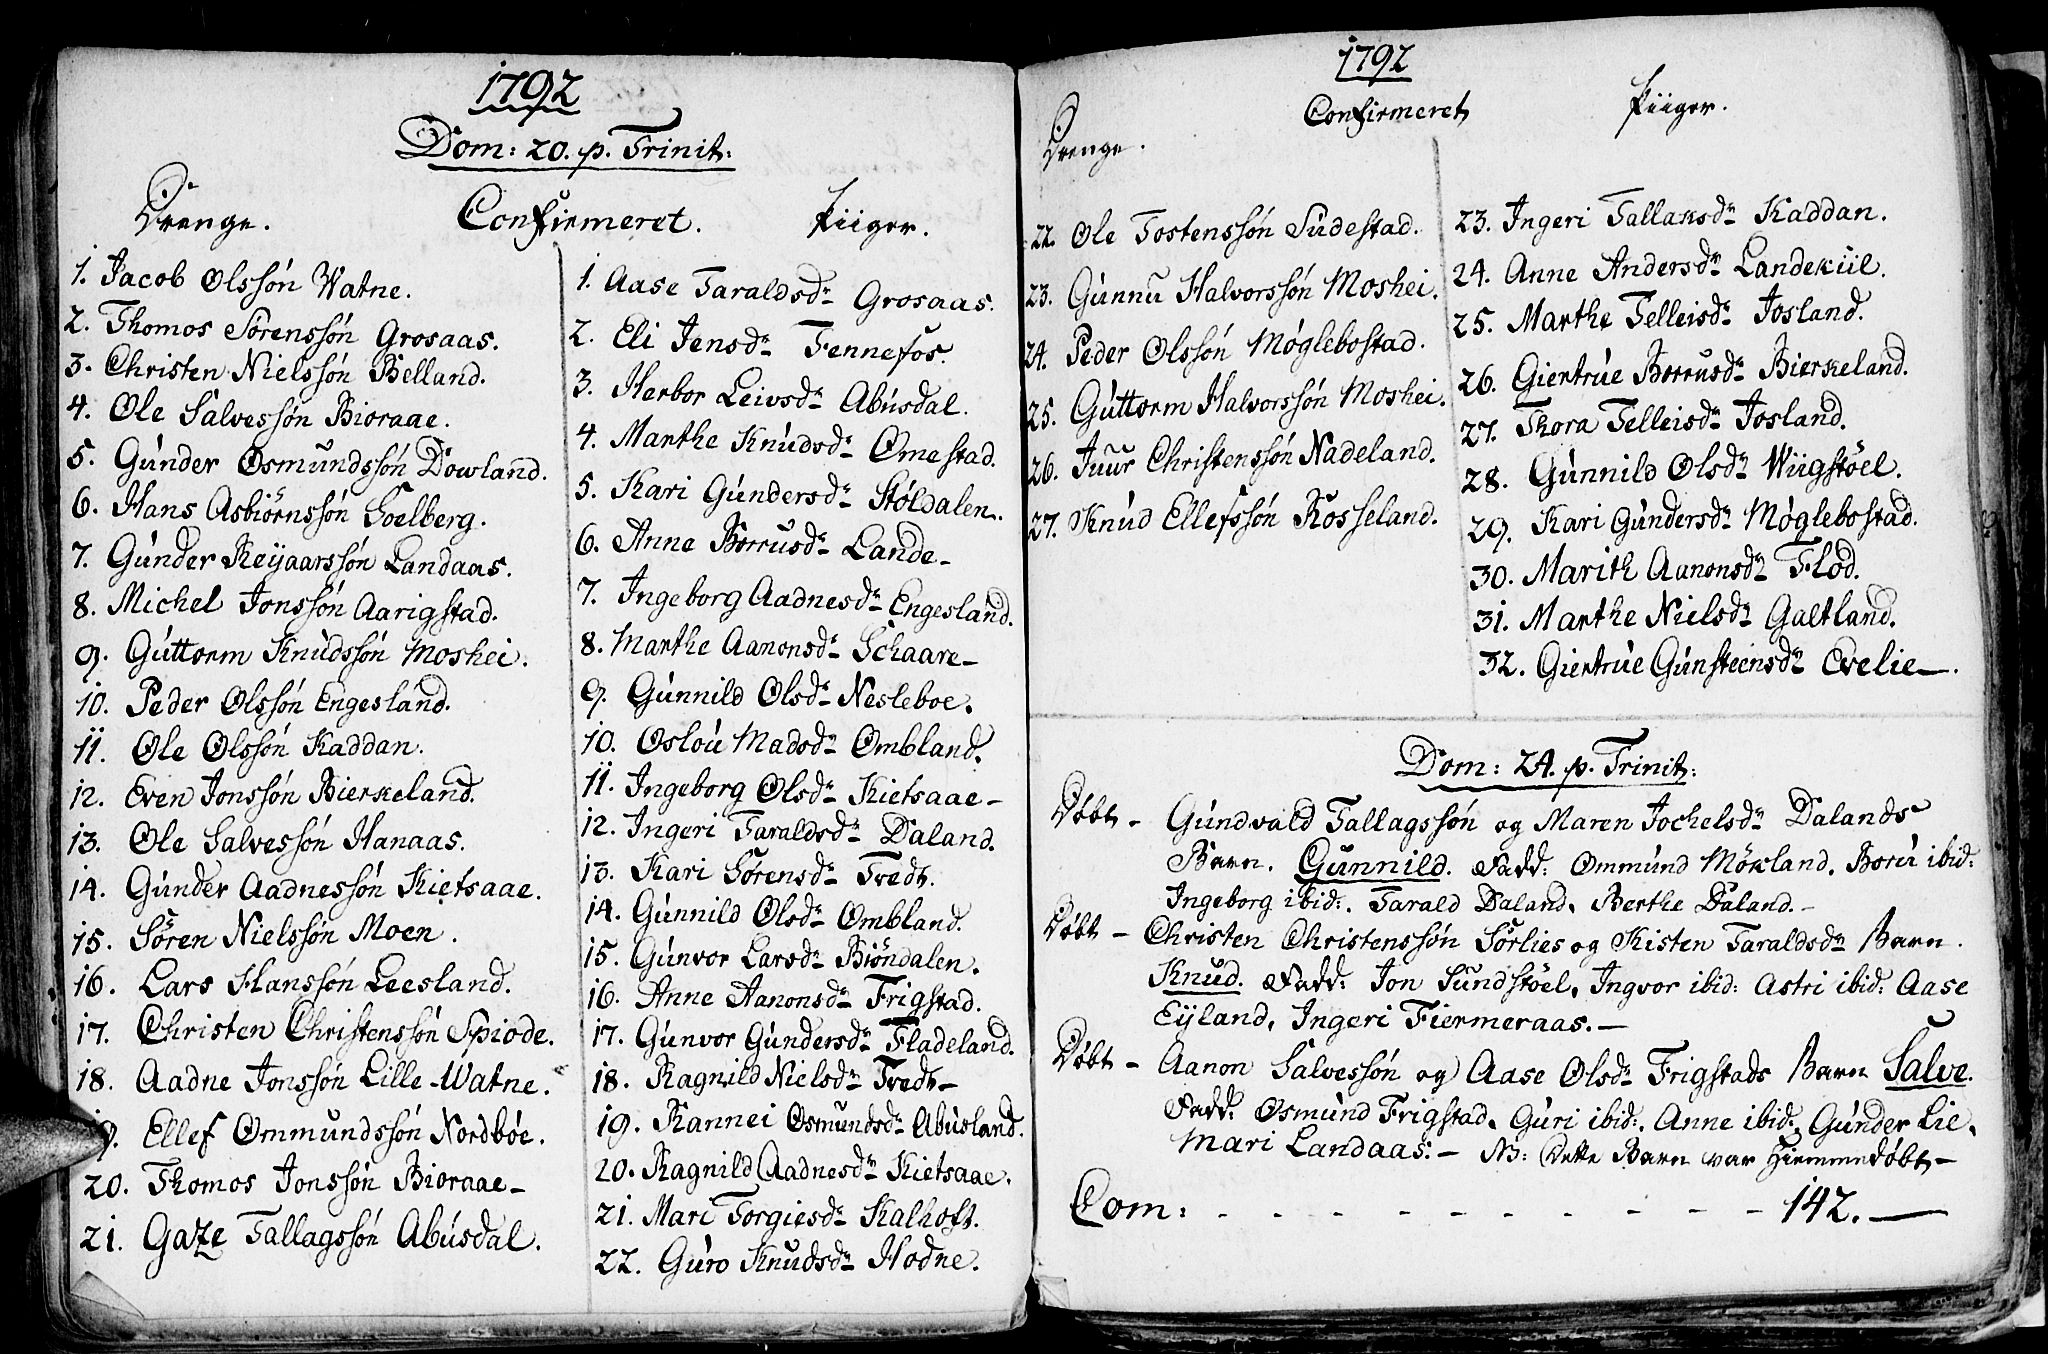 1792
Dom: 20. p. Trinit:
Drenge. Confirmeret. Piiger.
1. Jacob Olssón Watne.
2. Thomos Sörenssón Grosaas.
3. Christen Nielssón Belland.
4. Ole Salvessón Bioraae.
5. Gúnder Osmundssón Dowland.
6. Hans Asbiörnssón Soelberg.
7. Gúnder Reÿaarssón Landaas.
8. Michel Jonssón Aarigstad.
9. Gúttorm Knúdssón Moshei.
10. Peder Olssón Engesland.
11. Ole Olssón Kaddan.
12. Even Jonssón Bierkeland.
13. Ole Salvessón Hanaas.
14. Gúnder Aadnessón Kietsaae.
15. Sören Nielssón Moen.
16. Lars Hanssón Leesland.
17. Christen Christenssón Spiode.
18. Aadne Jonssón Lille-Watne.
19. Ellef Ommundssón Nordböe.
20. Thomos Jonssón Bioraae-
21. Gaze Tallagssón Abúsdal.
1. Aase Taraldsdr Grosaas.
2. Eli Jensdr Fennefos.
3. Herbor Leivsdr Abúsdal.
4. Marthe Knúdsdr Omestad.
5. Kari Gúndersdr Stóldalen.
6. Anne Borrusdr Lande-
7. Ingeborg Aadnesdr Engesland.
8. Marthe Aanonsdr Schaare-
9. Gúnnild Olsdr Nesleboe.
10. Oslou Madsdr Ombland.
11. Ingeborg Olsdr Kietsaae-
12. Ingeri Taraldsdr Daland.
13. Kari Sörensdr Tvedt.
14. Gúnnild Olsdr Ombland.
15. Gúnvor Larsdr Biöndalen.
16. Anne Aanonsdr Frigstad.
17. Gúnvor Gúndersdr Fladeland.
18. Ragnild Nielsdr Tvedt-
19. Rannei Osmundsdr Abúsland.
20. Ragnild Aadnesdr Kietsaae.
21. Mari Torgiesdr Kalhoft.
22. Gúro Knudsdr Hodne.
1792
Drenge. Confirmeret Piiger.
22. Ole Tostenssón Sudestad.
23. Gúnnu Halvorssón Moshei.
24. Peder Olssón Móglebostad.
25. Gúttorm Halvorssón Moshei.
26. Juur Christenssón Nadeland.
27. Knúd Ellefssón Rosseland.
23. Ingeri Tallaksdr Kaddan.
24. Anne Andersdr Landekiil.
25. Marthe Telleisdr Josland.
26. Giertrúe Borrusdr Bierkeland.
27. Thora Telleisdr Josland.
28. Gúnnild Olsdr Wiigstöel.
29. Kari Gúndersdr Móglebostad.
30. Marith Aanonsdr Flod.
31. Marthe Nielsdr Galtland.
32. Giertrúe Gúnsteensdr Evelie-.
Dom: 24. p. Trinit:
Döbt- Gúndvald Tallagssón og Maren Jochelsdr Dalands
Barn. Gunnild. Fadd: Ommúnd Mökland. Ború ibid:
Ingeborg ibid:. Tarald Daland. Berthe Daland.-
Döbt - Christen Christenssón Sörlies og Kisten Taraldsdr Barn.
Knud. Fadd: Jon Sundstöel, Ingvor ibid: Astri ibid: Aase
Eÿland, Ingeri Fiermeraas.-
Döbt - Aanon Salvessón og Aase Olsdr Frigstads Barn Salve.
Fadd: Osmúnd Frigstad. Gúri ibid:. Anne ibid. Gúnder Lie.
Mari Landaas.- NB: Dette Barn var Hiemmedöbt-
Com: - - - - - - - - - - - 142.-